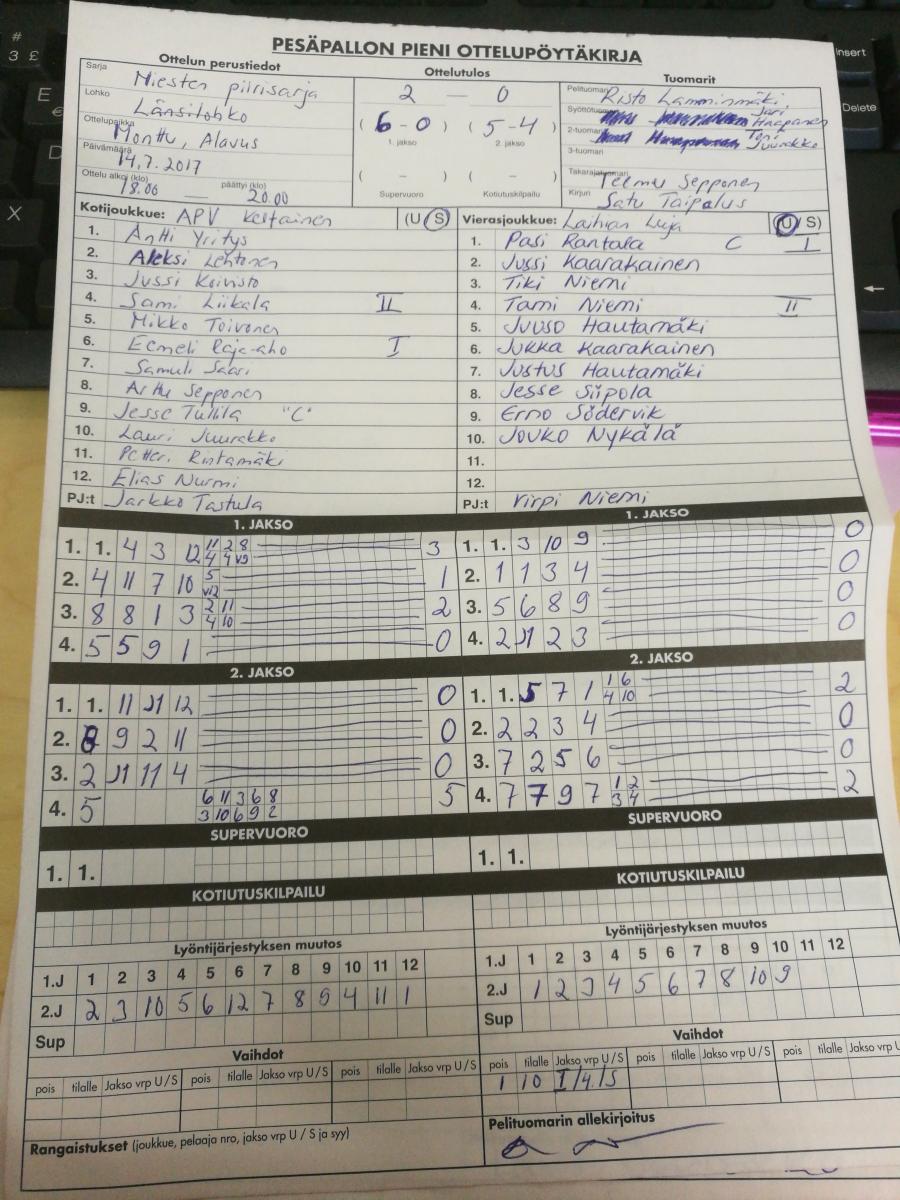 PESÄPALLON PIENI OTTELUPÖYTÄKIRJA
Ottelun perustiedot
Sarja Miesten piirisarja
Lohko Länsilohko
Ottelupaikka Monttu, Alavus
Päivämäärä 14.7.2017
Ottelu alkoi (klo) 18.00 — päättyi (klo) 20.00
Ottelutulos
2 — 0
(6-0) (5-4)
1. jakso 2. jakso
( - ) ( - )
Supervuoro Kotiutuskilpailu
Tuomarit
Pelituomari Risto Lamminmäki,
Syöttötuomari Jari Haapanen
2-tuomari Toni Juurakko
3-tuomari
Takarajatuomari Teemu Sepponen
Kirjuri Satu Taipalus
Kotijoukkue: APV Keltainen (U/S)
1. Antti Yritys
2. Aleksi Lehtinen
3. Jussi Koivisto
4. Sami Liikala II
5. Mikko Toivonen
6. Eemeli Raja-aho I
7. Samuli Saari
8. Arttu Sepponen
9. Jesse Tullila "C"
10. Lauri Juurakko
11. Petteri Rintamäki
12. Elias Nurmi
PJ:t Jarkko Tastula
Vierasjoukkue: Laihian Luja (U/S)
1. Pasi Rantala C I
2. Jussi Kaarakainen
3. Tiki Niemi
4. Tami Niemi II
5. Juuso Hautamäki
6. Jukka Kaarakainen
7. Justus Hautamäki
8. Jesse Siipola
9. Erno Södervik
10. Jouko Nykälä
11.
12.
PJ:t Virpi Niemi
1. JAKSO
1. 1. 4 3 12 11 2 8 3
4 4 V9
2. 4 11 7 10 5 1
V12
3. 8 8 1 3 2 11 2
4 10
4. 5 5 9 1 0
1. JAKSO
1. 1. 3 10 9 0
2. 1 1 3 4 0
3. 5 6 8 9 0
4. 2 J1 2 3 0
2. JAKSO
1. 1. 11 J1 12 0
2. 8 9 2 11 0
3. 2 J1 11 4 0
4. 5 6 11 3 6 8 5
3 10 6 9 2
2. JAKSO
1. 1. 5 7 1 1 6 2
4 10
2. 2 2 3 4 0
3. 7 2 5 6 0
4. 7 7 9 7 1 2 2
3 4
SUPERVUORO
1. 1.
SUPERVUORO
1. 1.
KOTIUTUSKILPAILU
KOTIUTUSKILPAILU
Lyöntijärjestyksen muutos
1.J 1 2 3 4 5 6 7 8 9 10 11 12
2.J 2 3 10 5 6 12 7 8 9 4 11 1
Sup
Lyöntijärjestyksen muutos
1.J 1 2 3 4 5 6 7 8 9 10 11 12
2.J 1 2 3 4 5 6 7 8 10 9
Sup
Vaihdot
pois tilalle Jakso vrp U/S pois tilalle Jakso vrp U/S pois tilalle Jakso vrp U/S
Vaihdot
pois tilalle Jakso vrp U/S pois tilalle Jakso vrp U/S pois tilalle Jakso vrp U/S
1 10 I/4/S
Rangaistukset (joukkue, pelaaja nro, jakso vrp U / S ja syy)
Pelituomarin allekirjoitus